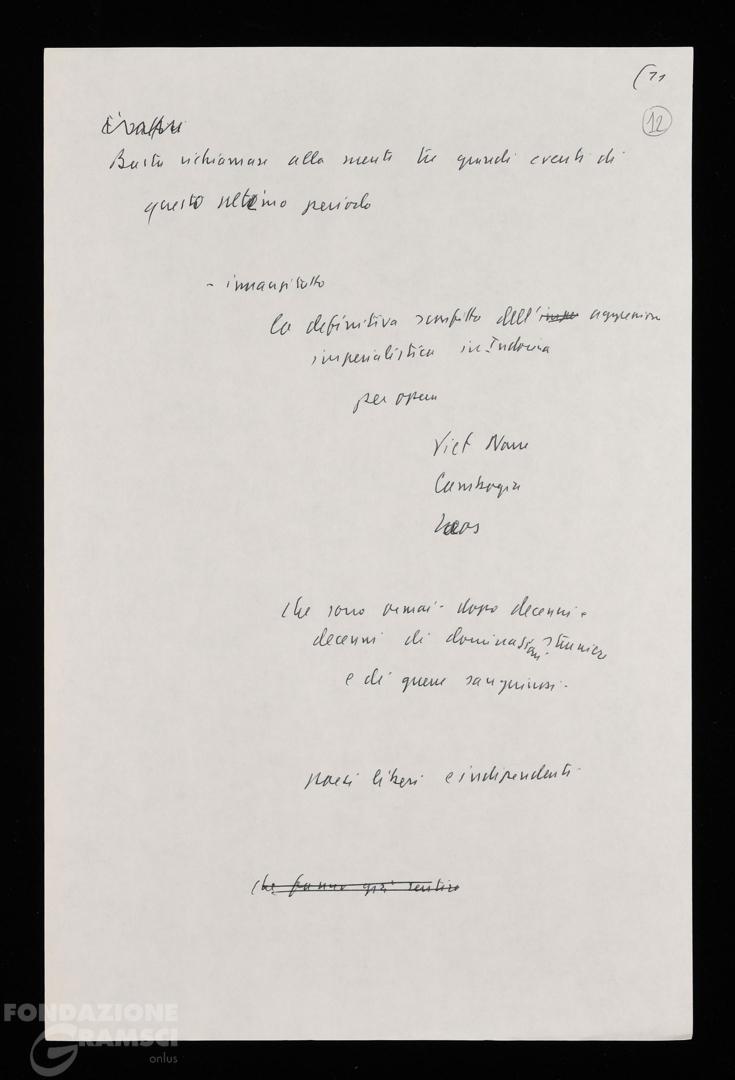 (11
12
Basta richiamare alla mente tre grandi eventi di
questo ultimo periodo
- innanzitutto
la definitiva sconfitta dell' aggressione
imperialistica in Indocina
per opera
Viet Nam
Cambogia
Laos
che sono ormai - dopo decenni e
decenni di dominazioni straniere
e di guerre sanguinose -
paesi liberi e indipendenti
che fanno già sentire
FONDAZIONE
GRAMSCI
onlus